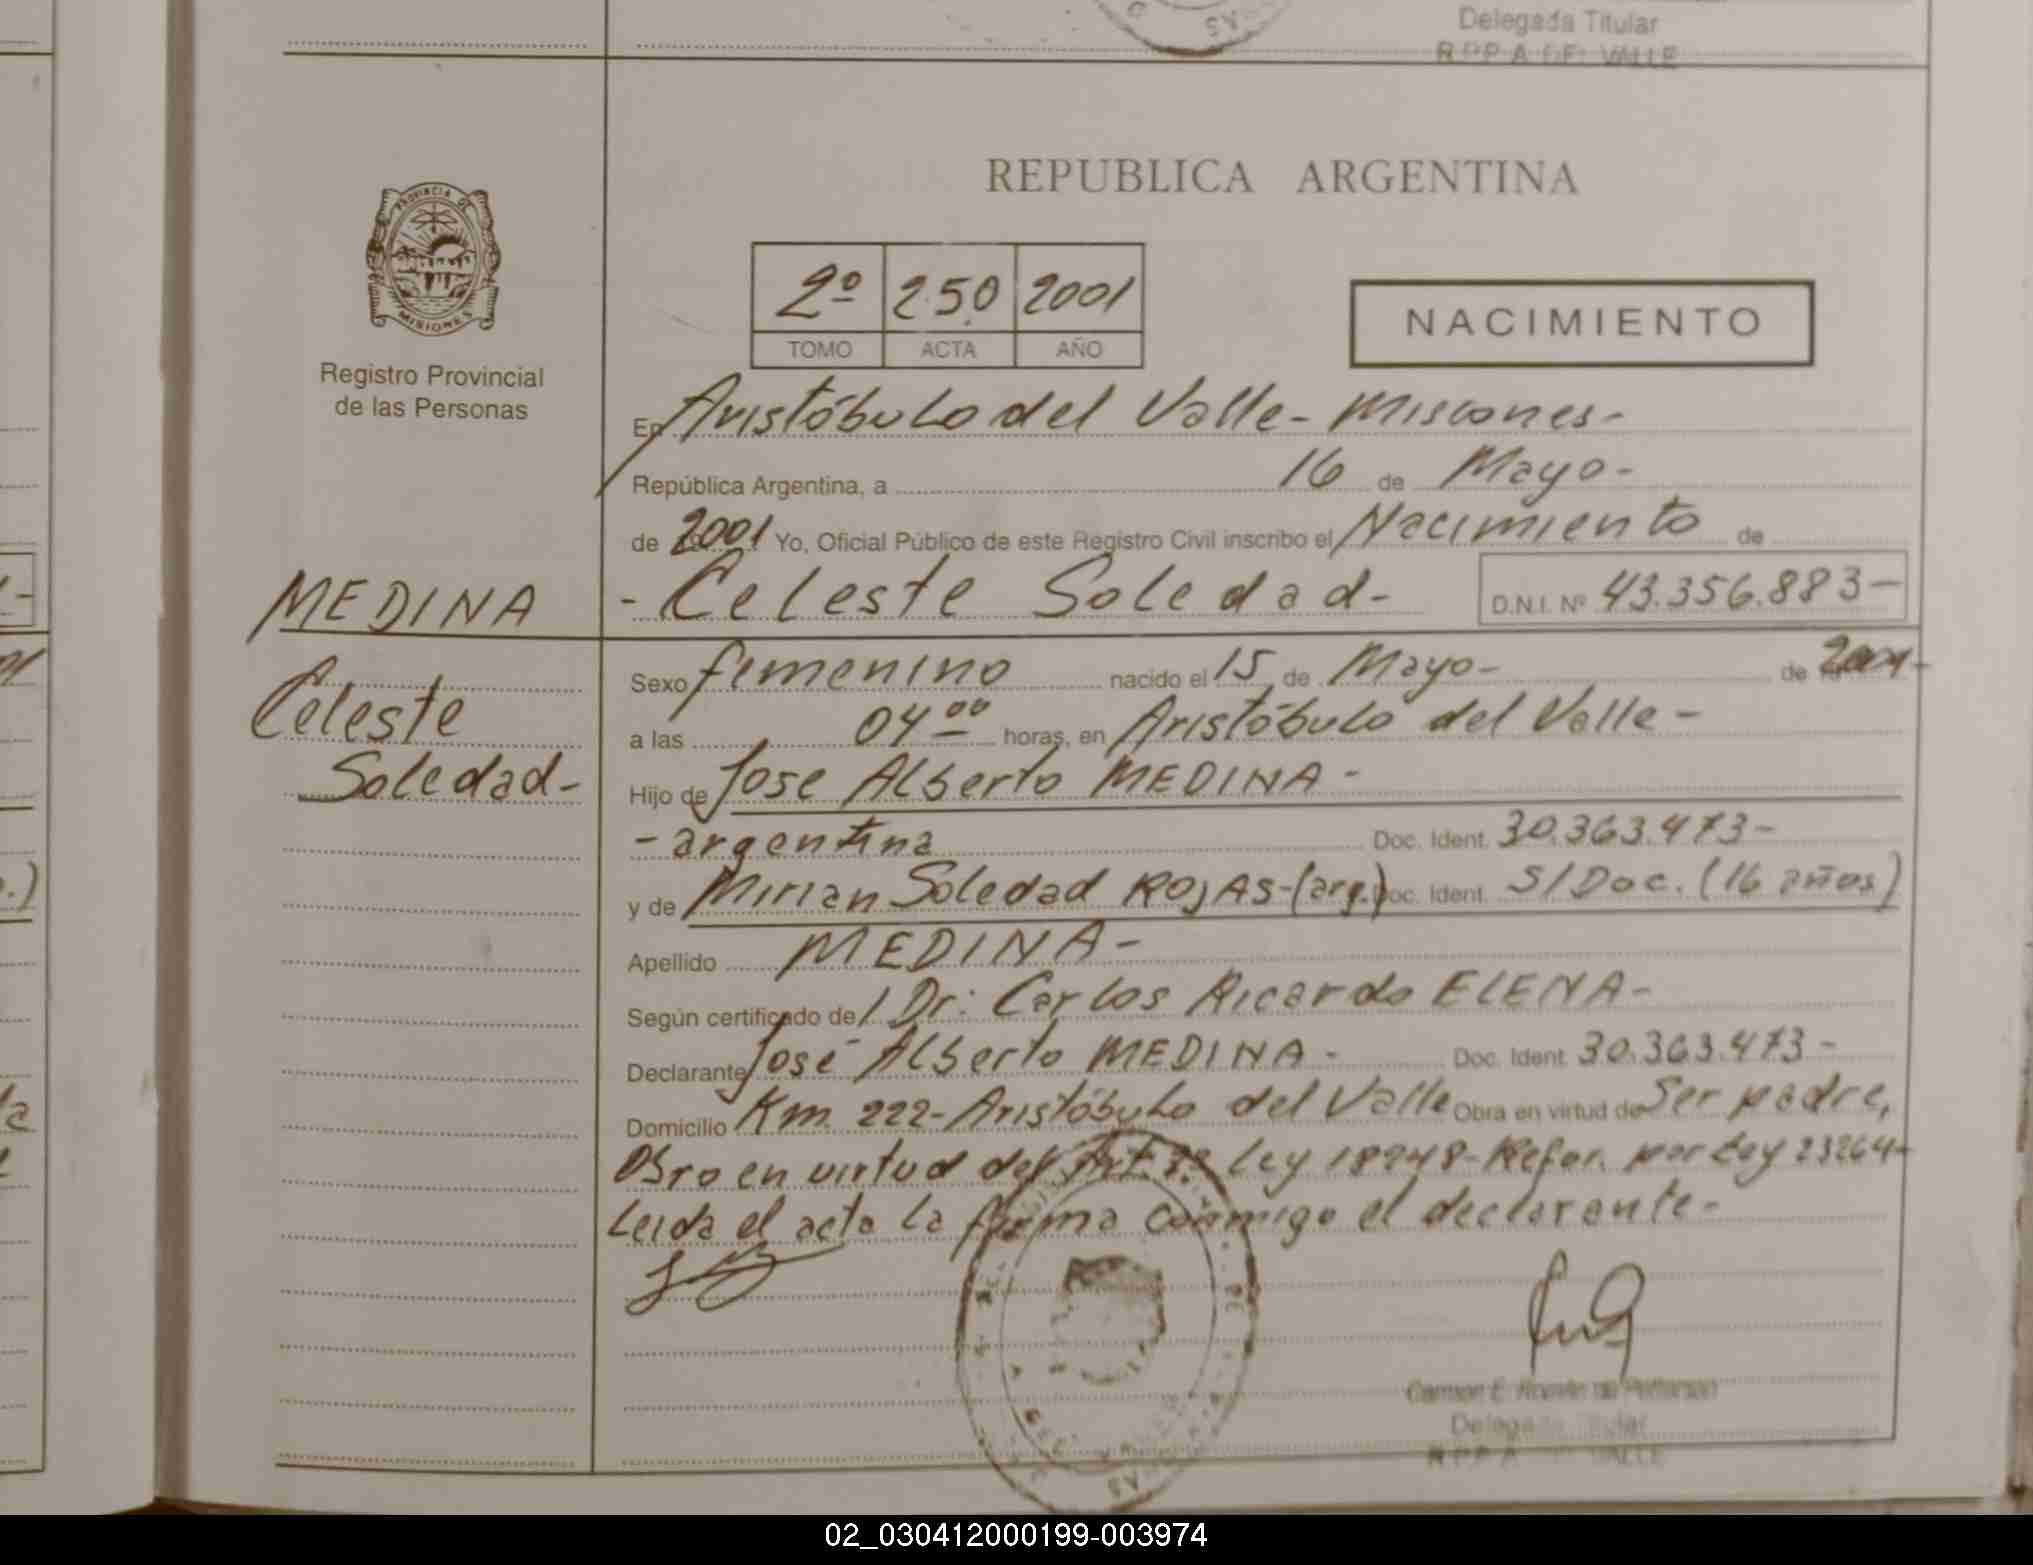 Delegada Titular
R.P.P. A. DEL VALLE
REPUBLICA ARGENTINA
PROVINCIA DE
MISIONES
Registro Provincial
de las Personas
2º 250 2001
TOMO ACTA AÑO
NACIMIENTO
En Aristóbulo del Valle - Misiones -
República Argentina, a 16 de Mayo -
de 2001 Yo, Oficial Público de este Registro Civil inscribo el Nacimiento de
MEDINA
- Celeste Soledad - D.N.I. Nº 43.356.883 -
Celeste
Soledad -
Sexo femenino nacido el 15 de Mayo - de 2001 -
a las 04 00 horas, en Aristóbulo del Valle -
Hijo de Jose Alberto MEDINA -
- argentina Doc. Ident. 30.363.473 -
y de Mirian Soledad ROJAS - (arg.) Doc. Ident. S/Doc. (16 años)
Apellido MEDINA -
Según certificado de / Dr: Carlos Ricardo ELENA -
Declarante José Alberto MEDINA - Doc. Ident. 30.363.473 -
Domicilio Km. 222 - Aristóbulo del Valle Obra en virtud de Ser padre,
Obro en virtud del Art. Ley 18248 - Refor. por Ley 23264 -
Leida el acta la firma conmigo el declarante -
Carmen E.
Delegada Titular
R.P.P. A. VALLE
02_030412000199-003974